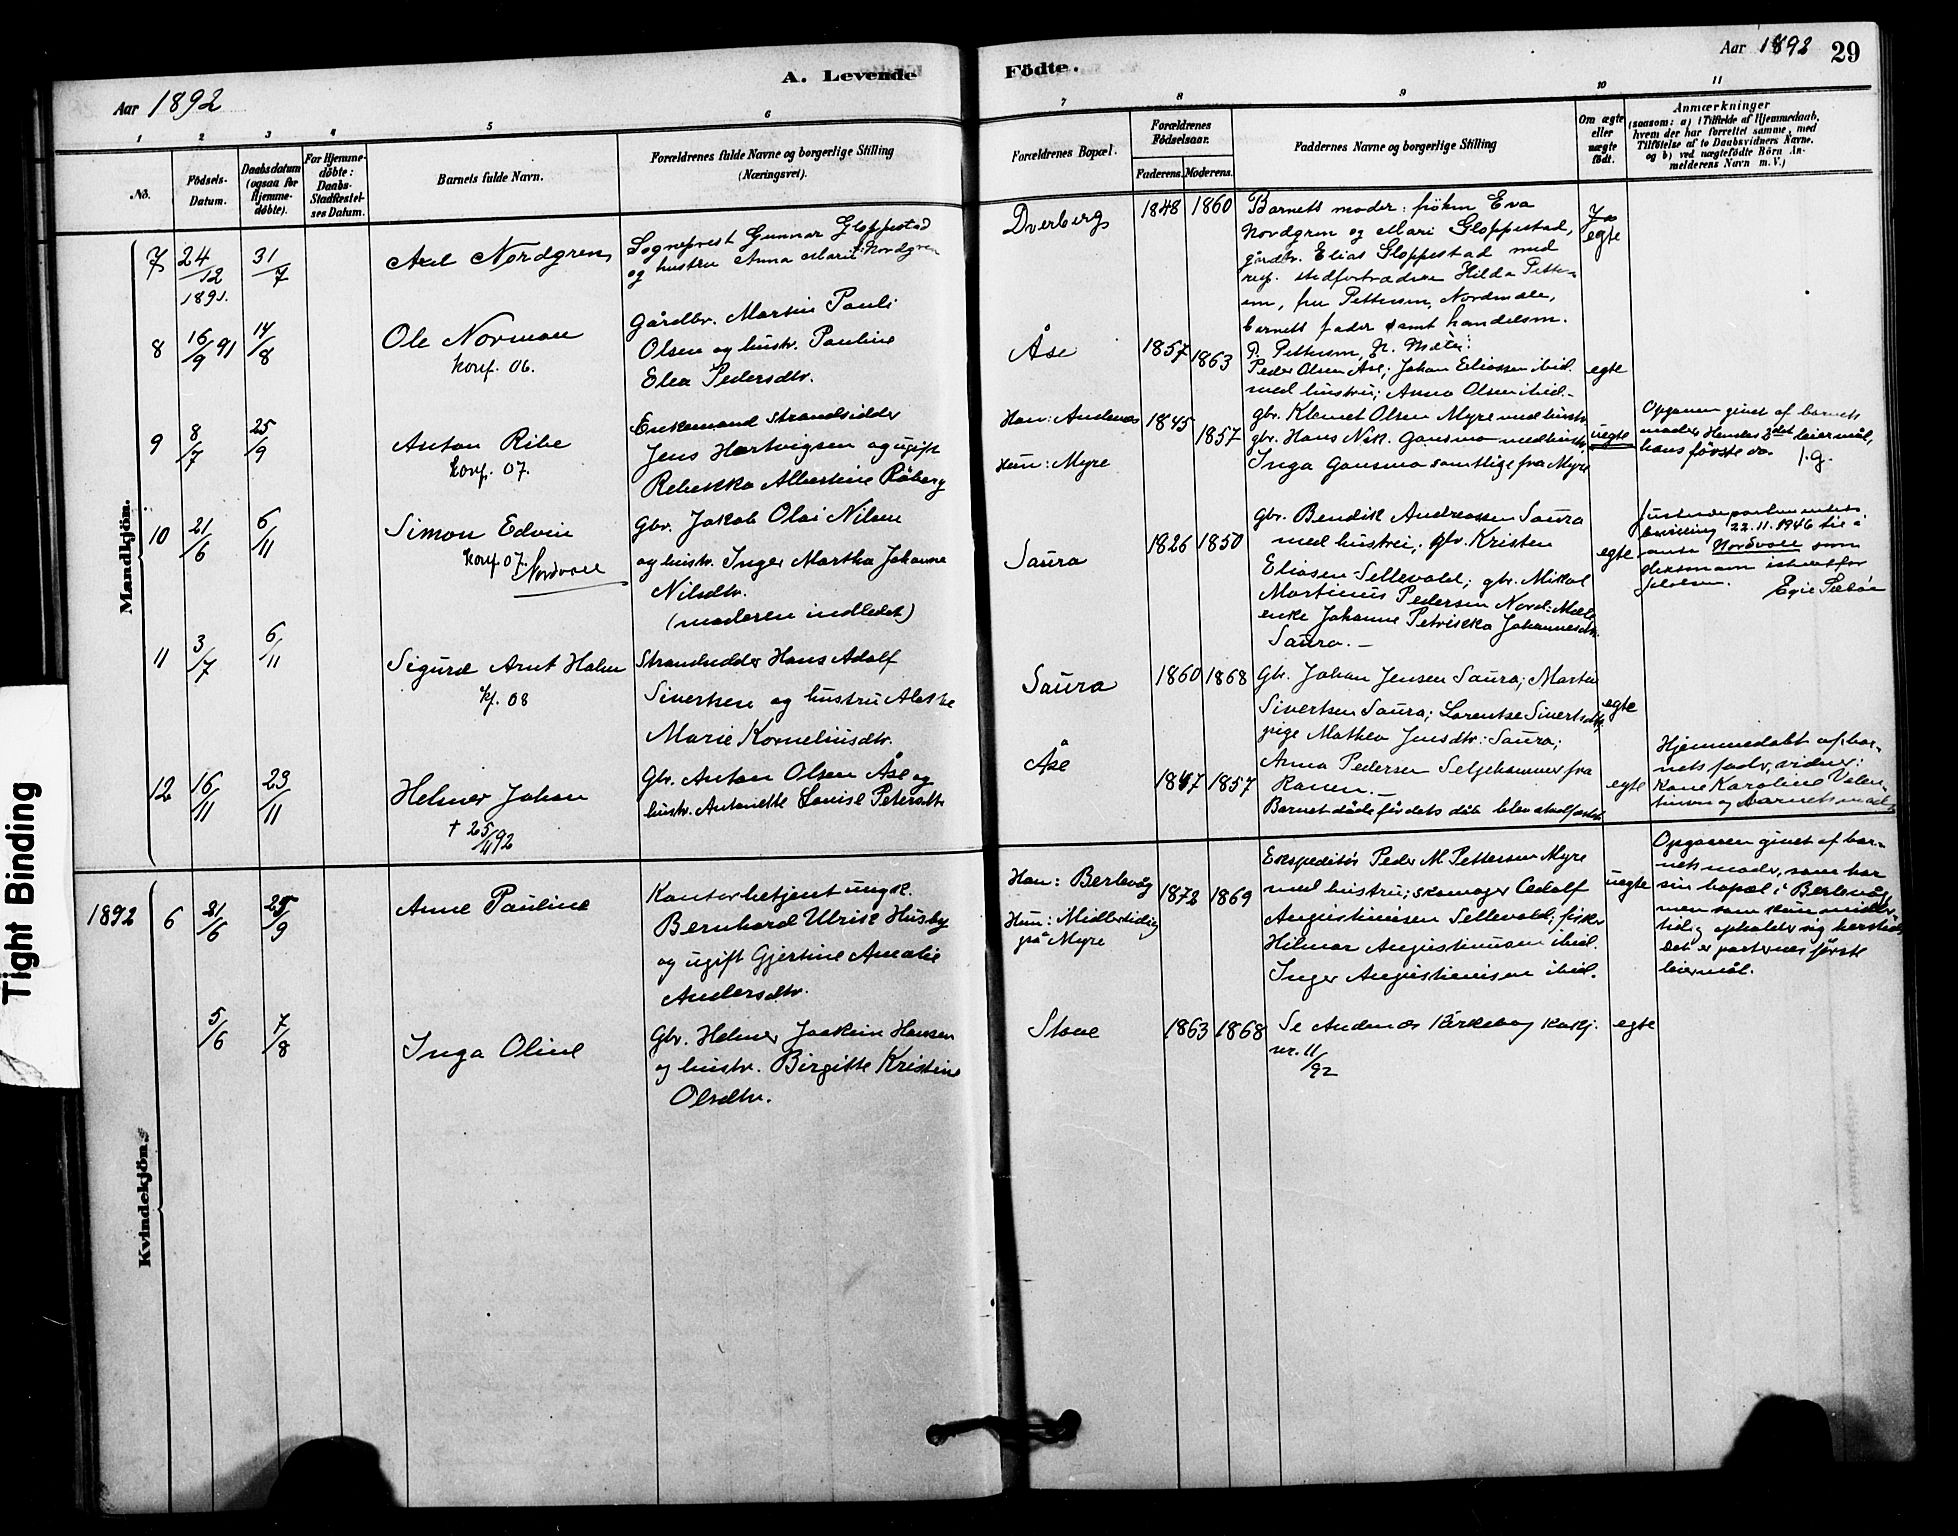 A. Levende
Aar 1892
1 2 3 4 5 6
Nô. Födsels-Datum. Daabsdatum (ogsaa for Hjemme-döbte). For Hjemme-döbte: Daabs-Stadfæstel-ses Datum. Barnets fulde Navn. Forældrenes fulde Navne og borgerlige Stilling (Næringsvei).
Mandkjön.
7 24/12 1891. 31/7 Axel Nordgren
Sogneprest Gunnar Gloppestad
og hustru Anna Marie f. Nordgren
8 16/9 91 14/8 Ole Norman
konf. 06.
Gårdbr. Martin Pauli
Olsen og hustr. Pauline
Elea Pedersdtr.
9 8/7 25/9 Anton Ribe
konf. 07.
Enkemand strandsidder
Jens Hartvigsen og ugift
Rebekka Albertine Röberg
10 21/6 6/11 Simon Edvin
konf. 07. Nordvoll
Gbr. Jakob Olai Nilsen
og hustr. Inger Martha Johanne
Nilsdtr.
(moderen indledet)
11 3/7 6/11 Sigurd Arnt Holm
kf. 08
Strandsidder Hans Adolf
Sivertsen og hustru Aletke
Marie Korneliusdtr.
12 16/11 23/11 Helmer Johan
† 25/11 92
Gbr. Anton Olsen Åse og
hustr. Antonette Louise Petersdtr
Kvindekjön.
1892 6 21/6 25/9 Anne Pauline
Kontorbetjent ungk.
Bernhard Ulrik Husby
og ugift Gjertine Amalie
Andersdtr.
5/6 7/8 Inga Oline
Gbr. Helmer Joakim Hansen
og hustr. Birgitte Kristine
Olsdtr.
Tight Binding
Födte.
Aar 1892 29
7 8 9 10 11
Forældrenes Bopæl. Forældrenes Födselsaar. Faderens. Moderens. Faddernes Navne og borgerlige Stilling Om ægte eller uægte födt.
Anmærkninger
(saasom: a) i Tilfælde af Hjemmedaab,
hvem der har forrettet samme, med
Tilföielse af to Daabsvidners Navne,
og b) ved uægtefödte Börn An-
melderens Navn m. V.)
Dverberg 1848 1860 Barnets moder: frøken Eva
Nordgren og Mari Gloppestad,
gårdbr. Elias Gloppestad med
resp. stedfortrædere Hilda Petter-
sen, fru Pettersen, Nordmele,
barnets fader samt handelsm.
P. Pettersen, N. Mele.
egte
Åse 1857 1863
Peder Olsen Åse; Johan Eliassen ibid.
med hustru; Anna Olsen ibid.
egte
Han: Andenæs 1845 1857
Hun: Myre
gbr. Klemet Olsen Myre med hustr.
gbr. Hans Nik. Gansmo med hustr.
Inga Gansmo samtlige fra Myre
uegte
Opgaven givet af barnets
moder Hendes 3det leiermål,
hans første do.
Saura 1826 1850
gbr. Bendik Andreassen Saura
med hustru; gbr. Kristen
Eliasen Sellevold; gbr. Mikal
Martinus Pedersen Nord-Mele
enke Johanne Petrikka Johannesdtr.
Saura.
egte
22.11.1946
Nordvoll som
Saura 1860 1868
Gbr. Johan Jensen Saura; Morten
Sivertsen Saura; Lorentse Sivertsdtr;
pige Mathea Jensdtr. Saura;
egte
Åse 1847 1857
Anna Pedersen Seljehammer fra
Ranen.
Barnet døde før dets dåb blev stadfæstet
egte
Hjemmedøbt af bar-
nets fader, vidner:
kone Karoline Valen-
tinsen og barnets moder
Han: Berlevåg 1872 1869
Hun: Midlertidig
på Myre
Ekspeditör Peder M. Pettersen Myre
med hustru; skomager Adolf
Augustinusen Sellevold; fisker
Hilmar Augustinusen ibid.
Inger Augustinusen ibid.
uegte
Opgaven givet af bar-
nets moder, som har
sin bopæl i Berlevåg,
men som kun midler-
tidig opholder sig hersteds
Det er parternes første
leiermål.
Stave 1863 1868
Se Andenæs Kirkebog Kvkj.
nr. 11/92
egte